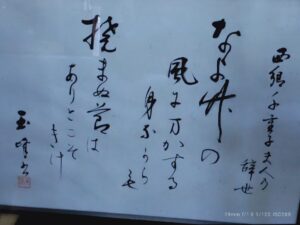 西郷千重子夫人の
辞世
なよ竹の
風にまかする
身ながらも
撓まぬ節は
ありとこそ
きけ
玉峰書